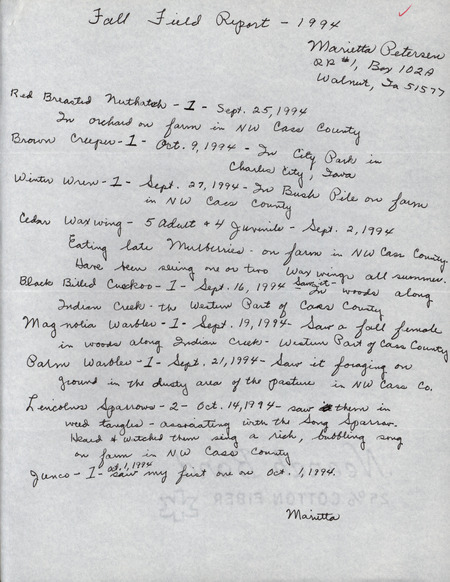 Fall Field Report - 1994
Marietta Petersen
RR #1, Box 102A
Walnut, Ia 51577
Red Breasted Nuthatch - 1 - Sept. 25, 1994
In orchard on farm in NW Cass County
Brown Creeper - 1 - Oct. 9, 1994 - In City Park in
Charles City, Iowa
Winter Wren - 1 - Sept. 27, 1994 - In Bush Pile on farm
in NW Cass County
Cedar Waxwing - 5 adult + 4 Juvenile - Sept. 2, 1994
Eating late Mulberries - on farm in NW Cass County.
Have been seeing one or two Waxwings all summer.
Black Billed Cuckoo - 1 - Sept. 16, 1994 Saw it - In woods along
Indian Creek - the Western Part of Cass County
Magnolia Warbler - 1 - Sept. 19, 1994 - Saw a fall female
in woods along Indian Creek - Western Part of Cass County
Palm Warbler - 1 - Sept. 21, 1994 - Saw it foraging on
ground in the dusty area of the pasture in NW Cass Co.
Lincolns Sparrows - 2 - Oct. 14, 1994 - saw them in
weed tangles - associating with the Song Sparrow.
Heard & watched them sing a rich, bubbling song
on farm in NW Cass County
Junco - 1 - Oct. 1, 1994 - saw my first one on Oct. 1, 1994.
Marietta
25% COTTON FIBER